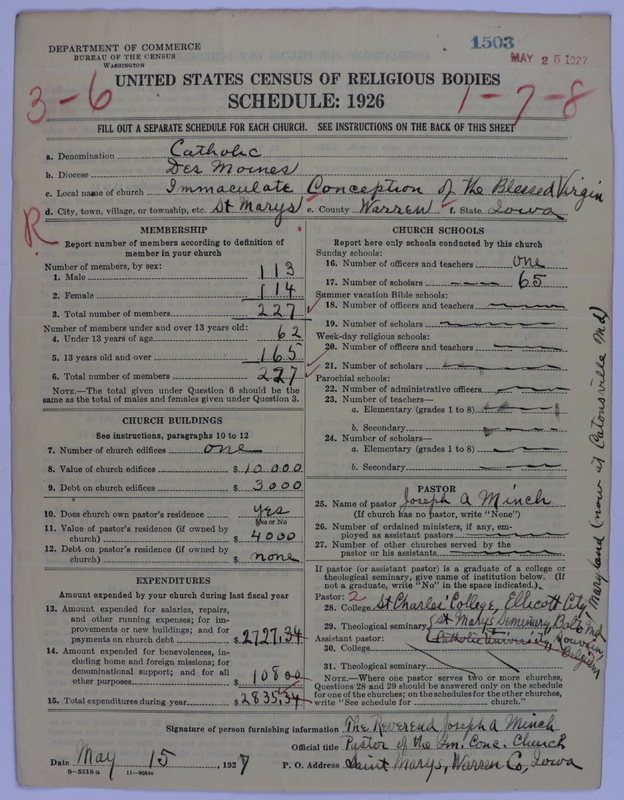 DEPARTMENT OF COMMERCE
BUREAU OF THE CENSUS
WASHINGTON
1503
MAY 25 1927
UNITED STATES CENSUS OF RELIGIOUS BODIES
SCHEDULE: 1926
3-6
1-7-8
FILL OUT A SEPARATE SCHEDULE FOR EACH CHURCH. SEE INSTRUCTIONS ON THE BACK OF THIS SHEET
a. Denomination Catholic
b. Diocese Des Moines
c. Local name of church Immaculate Conception of the Blessed Virgin
d. City, town, village, or township, etc. St Marys e. County Warren f. State Iowa
R
MEMBERSHIP
Report number of members according to definition of member in your church
Number of members, by sex:
1. Male 113
2. Female 114
3. Total number of members 227
Number of members under and over 13 years old:
4. Under 13 years of age 62
5. 13 years old and over 165
6. Total number of members 227
NOTE.—The total given under Question 6 should be the
same as the total of males and females given under Question 3.
CHURCH BUILDINGS
See instructions, paragraphs 10 to 12
7. Number of church edifices one
8. Value of church edifices $ 10000
9. Debt on church edifices $ 3000
10. Does church own pastor's residence yes
Yes or No
11. Value of pastor's residence (if owned by
church) $ 4000
12. Debt on pastor's residence (if owned by
church) $ none
EXPENDITURES
Amount expended by your church during last fiscal year
13. Amount expended for salaries, repairs,
and other running expenses; for im-
provements or new buildings; and for
payments on church debt $ 2727.34
14. Amount expended for benevolences, in-
cluding home and foreign missions; for
denominational support; and for all
other purposes $ 10800
15. Total expenditures during year $ 2835.34
CHURCH SCHOOLS
Report here only schools conducted by this church
Sunday schools:
16. Number of officers and teachers one
17. Number of scholars 65
Summer vacation Bible schools:
18. Number of officers and teachers
19. Number of scholars
Week-day religious schools:
20. Number of officers and teachers
21. Number of scholars
Parochial schools:
22. Number of administrative officers
23. Number of teachers—
a. Elementary (grades 1 to 8)
b. Secondary
24. Number of scholars—
a. Elementary (grades 1 to 8)
b. Secondary
PASTOR
25. Name of pastor Joseph A Minch
(If church has no pastor, write "None")
26. Number of ordained ministers, if any, em-
ployed as assistant pastors
27. Number of other churches served by the
pastor or his assistants
If pastor (or assistant pastor) is a graduate of a college or
theological seminary, give name of institution below. (If
not a graduate, write "No" in the space indicated.)
Pastor: 2
28. College St Charles' College, Ellicott City
Maryland (now at Catonsville Md)
29. Theological seminary St Marys Seminary Balto Md
Assistant pastor: Catholic University Louvain Belgium
30. College
31. Theological seminary
NOTE.—Where one pastor serves two or more churches,
Questions 28 and 29 should be answered only on the schedule
for one of the churches; on the schedules for the other churches,
write "See schedule for church."
Signature of person furnishing information The Reverend Joseph A Minch
Official title Pastor of the Im. Conc. Church
Date May 15, 1927 P. O. Address Saint Marys, Warren Co, Iowa
8-5518 a